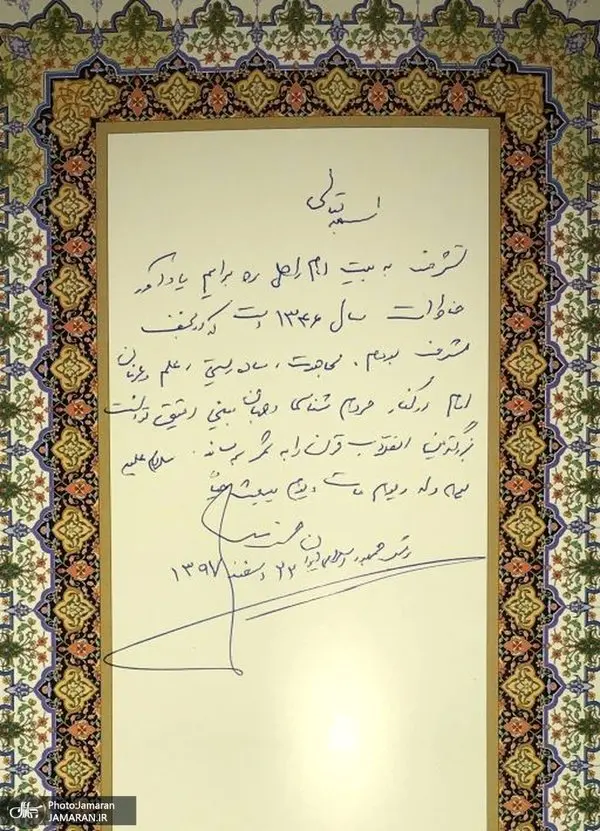 بسمه تعالی
تشرف به بیت امام راحل ره برایم یادآور
خاطرات سال ۱۳۴۶ است که در نجف
مشرف بودم. مجاهدت، ساده‌زیستی، علم و عرفان
امام در کنار مردم شناسی و جهان بینی دقیق توانست
بزرگترین انقلاب قرن را به ثمر برساند. سلام علیه
یوم ولد و یوم مات و یوم یبعث حیاً
حسن روحانی
رئیس جمهوری اسلامی ایران
۲۲ اسفند ۱۳۹۷
Photo:Jamaran
JAMARAN.IR
جماران